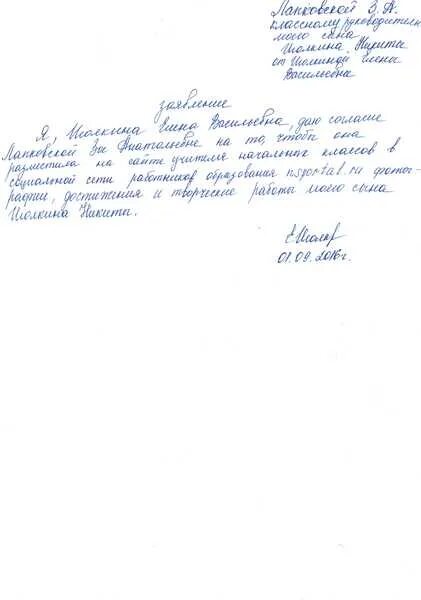 Лапковской З. А.
классному руководителю
моего сына
Иолкина Никиты
от Иолкиной Елены
Васильевны
заявление
Я, Иолкина Елена Васильевна, даю согласие
Лапковской Зое Анатольевне на то, чтобы она
разместила на сайте учителя начальных классов в
социальной сети работников образования nsportal.ru фотог-
рафии, достижения и творческие работы моего сына
Иолкина Никиты.
01.09.2016г.